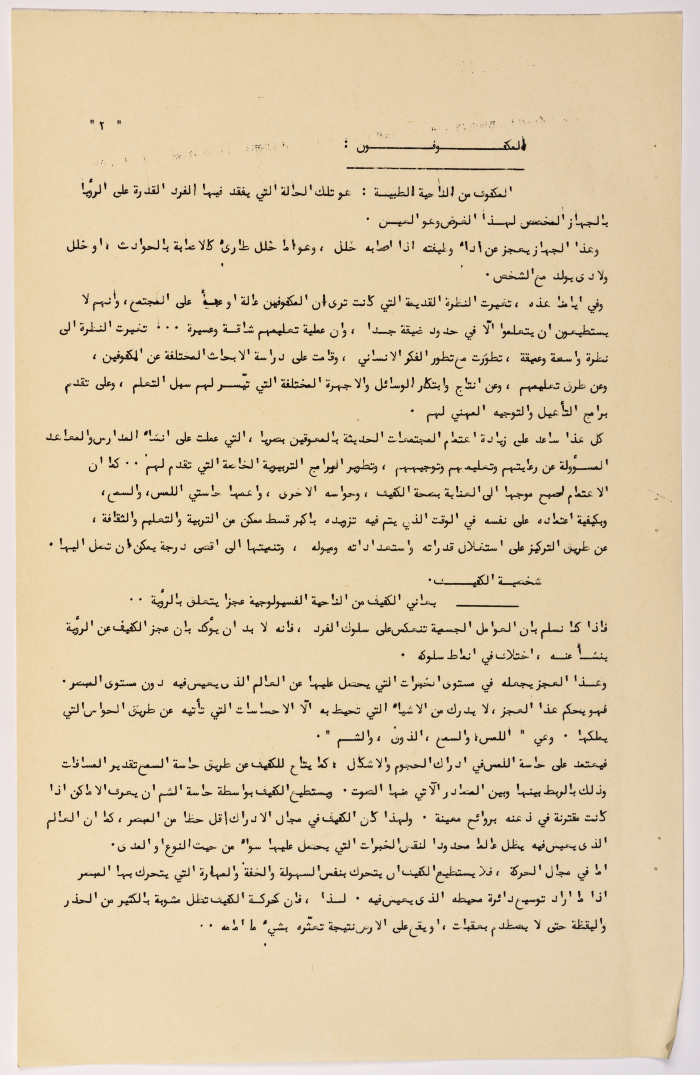 " ٢ "
المكفوفون :
المكفوف من الناحية الطبية : هو تلك الحالة التي يفقد فيها الفرد القدرة على الرؤيا
بالجهاز المخصص لهذا الغرض وهو العين ٠
وهذا الجهاز يعجز عن اداء وظيفته اذا اصابه خلل ، وهو اما خلل طارئ كالاصابة بالحوادث ، او خلل
ولادى يولد مع الشخص ٠
وفي ايامنا هذه ، تغيرت النظرة القديمة التي كانت ترى ان المكفوفين عالة او عبأ على المجتمع، وأنهم لا
يستطيعون ان يتعلموا الّا في حدود ضيقة جدا ، وان عملية تعليمهم شاقة وعسيرة ٠٠٠ تغيرت النظرة الى
نظرة واسعة وعميقة ، تطوّرت مع تطور الفكر الانساني ، وقامت على دراسة الابحاث المختلفة عن المكفوفين ،
وعن طرق تعليمهم ، وعن انتاج وابتكار الوسائل والاجهزة المختلفة التي تيّسر لهم سبل التعلم ، وعلى تقديم
برامج التأهيل والتوجيه المهني لهم ٠
كل هذا ساعد على زيادة اهتمام المجتمعات الحديثة بالمعوقين بصريا ، التي عملت على انشاء المدارس والمعاهد
المسؤولة عن رعايتهم وتعليمهم وتوجيههم ، وتطوير البرامج التربوية الخاصة التي تقدم لهم ٠٠ كما ان
الاهتمام اصبح موجها الى العناية بصحة الكفيف ، وحواسه الاخرى ، واهمها حاستي اللمس، والسمع،
وبكيفية اعتماده على نفسه في الوقت الذي يتم فيه تزويده باكبر قسط ممكن من التربية والتعليم والثقافة ،
عن طريق التركيز على استغلال قدراته واستعداداته وميوله ، وتنميتها الى اقصى درجة يمكن ان تصل اليها ٠
شخصية الكفيف ٠
يعاني الكفيف من الناحية الفسيولوجية عجزا يتعلق بالرؤية ٠٠
فاذا كنا نسلم بان العوامل الجسمية تنعكس على سلوك الفرد ، فانه لا بد ان يؤكد بان عجز الكفيف عن الرؤية
ينشأ عنه ، اختلاف في انماط سلوكه ٠
وهذا العجز يجعله في مستوى الخبرات التي يحصل عليها عن العالم الذى يعيش فيه دون مستوى المبصر ٠
فهو بحكم هذا العجز ، لا يدرك من الاشياء التي تحيط به الّا الاحساسات التي تأتيه عن طريق الحواس التي
يملكها ٠ وهي " اللمس، والسمع ، الذوق ، والشم " ٠
فيعتمد على حاسة اللمس في ادراك الحجوم والاشكال ، كما يتاح للكفيف عن طريق حاسة السمع تقدير المسافات
وذلك بالربط بينها وبين المصادر الآتي منها الصوت ٠ ويستطيع الكفيف بواسطة حاسة الشم ان يعرف الاماكن اذا
كانت مقترنة في ذهنه بروائح معينة ٠ ولهذا كان الكفيف في مجال الادراك أقل حظا من المبصر ، كما ان العالم
الذى يعيش فيه يظل عالما محدودا لنقص الخبرات التي يحصل عليها سواء من حيث النوع او المدى ٠
اما في مجال الحركة ، فلا يستطيع الكفيف ان يتحرك بنفس السهولة والخفة والمهارة التي يتحرك بها المبصر
اذا ما اراد توسيع دائرة محيطه الذى يعيش فيه ٠ لذا ، فان حركة الكفيف تظل مشوبة بالكثير من الحذر
واليقظة حتى لا يصطدم بعقبات ، او يقع على الارض نتيجة تعثّره بشيء ما امامه ٠٠